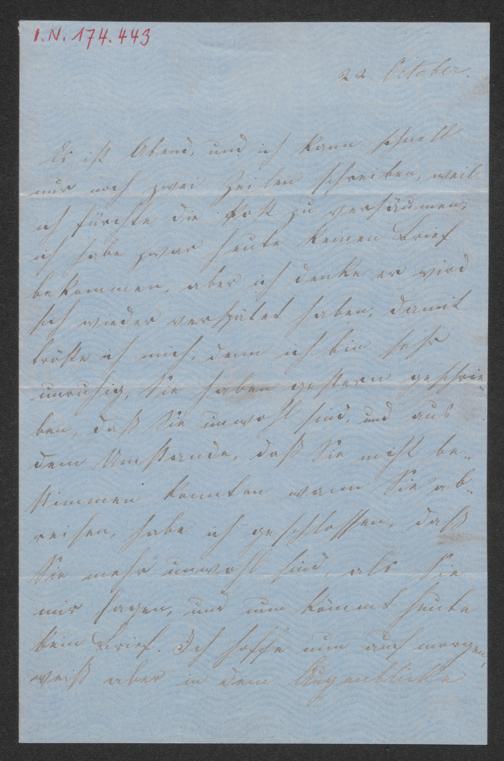 I.N. 174.443
22 October.
Es ist Abend, und ich kann schnell
nur noch zwei Zeilen schreiben, weil
ich fürchte die Post zu versäumen,
ich habe zwar heute keinen Brief
bekommen, aber ich denke er wird
sich wieder verspätet haben, damit
tröste ich mich, denn ich bin sehr
unruhig, Sie haben gestern geschrie-
ben, daß Sie unwohl sind, und aus
dem Umstande, daß Sie nicht be-
stimmen konnten wann Sie ab-
reisen, habe ich geschlossen, daß
Sie mehr unwohl sind, als Sie
mir sagen, und nun kömmt heute
kein Brief. Ich hoffe nun auf morgen,
weiß aber in dem Augenblicke